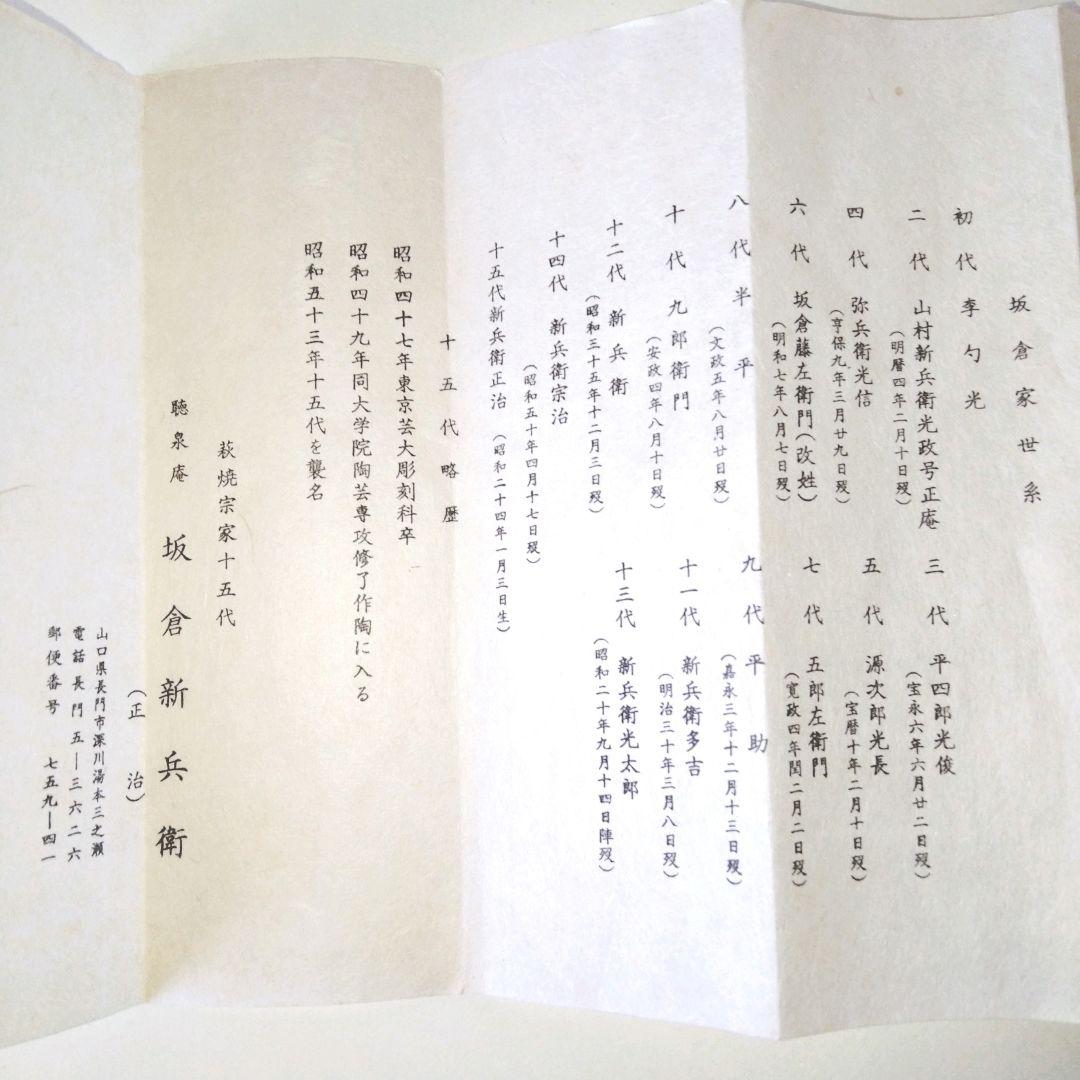 坂倉家世系
初代 李勺光
二代 山村新兵衛光政号正庵
(明暦四年二月十日歿)
三代 平四郎光俊
(宝永六年六月廿二日歿)
四代 弥兵衛光信
(享保九年三月廿九日歿)
五代 源次郎光長
(宝暦十年二月十日歿)
六代 坂倉藤左衛門(改姓)
(明和七年八月七日歿)
七代 五郎左衛門
(寛政四年閏二月二日歿)
八代 半平
(文政五年八月廿日歿)
九代 平助
(嘉永三年十二月十三日歿)
十代 九郎衛門
(安政四年八月十日歿)
十一代 新兵衛多吉
(明治三十年三月八日歿)
十二代 新兵衛
(昭和三十五年十二月三日歿)
十三代 新兵衛光太郎
(昭和二十年九月十四日陣歿)
十四代 新兵衛宗治
(昭和五十年四月十七日歿)
十五代新兵衛正治 (昭和二十四年一月三日生)
十五代略歴
昭和四十七年東京芸大彫刻科卒
昭和四十九年同大学院陶芸専攻修了作陶に入る
昭和五十三年十五代を襲名
萩焼宗家十五代
聴泉庵 坂倉新兵衛
(正治)
山口県長門市深川湯本三之瀬
電話長門五―三六二六
郵便番号 七五九―四一